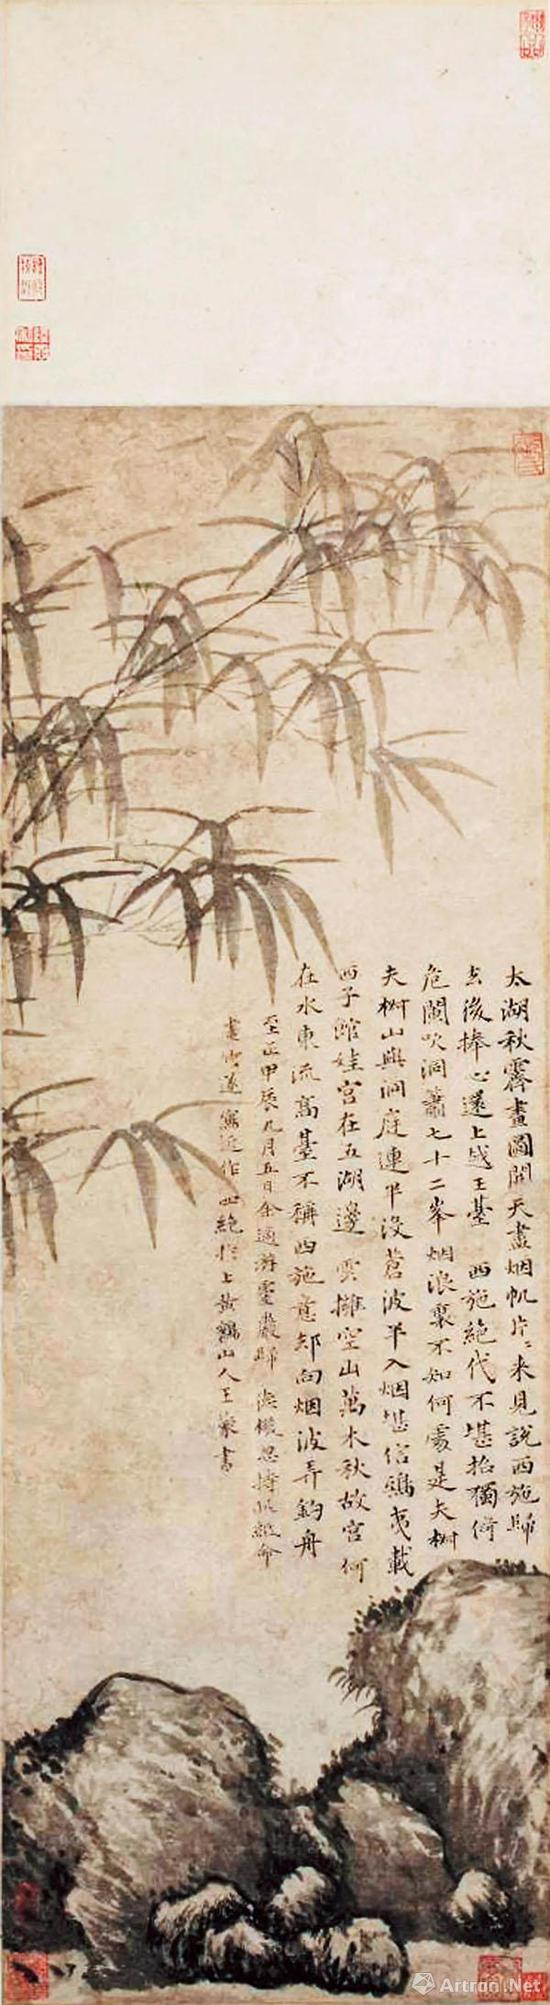 太湖秋霽畫圖開天盡烟帆片〻来見說西施歸
去後捧心還上越王臺 西施絶代不堪招獨倚
危闌吹洞簫七十二峯烟浪裏不知何處是夫椒
夫椒山與洞庭連半沒蒼波半入烟堪信鴟夷載
西子館娃宫在五湖邊 雲擁空山萬木秋故宫何
在水東流高臺不稱西施意却向烟波弄釣舟
至正甲辰九月五日余適游靈巖歸 德機忽持此紙命
畫竹遂寫近作四絶於上黄鶴山人王蒙書
Artron.Net